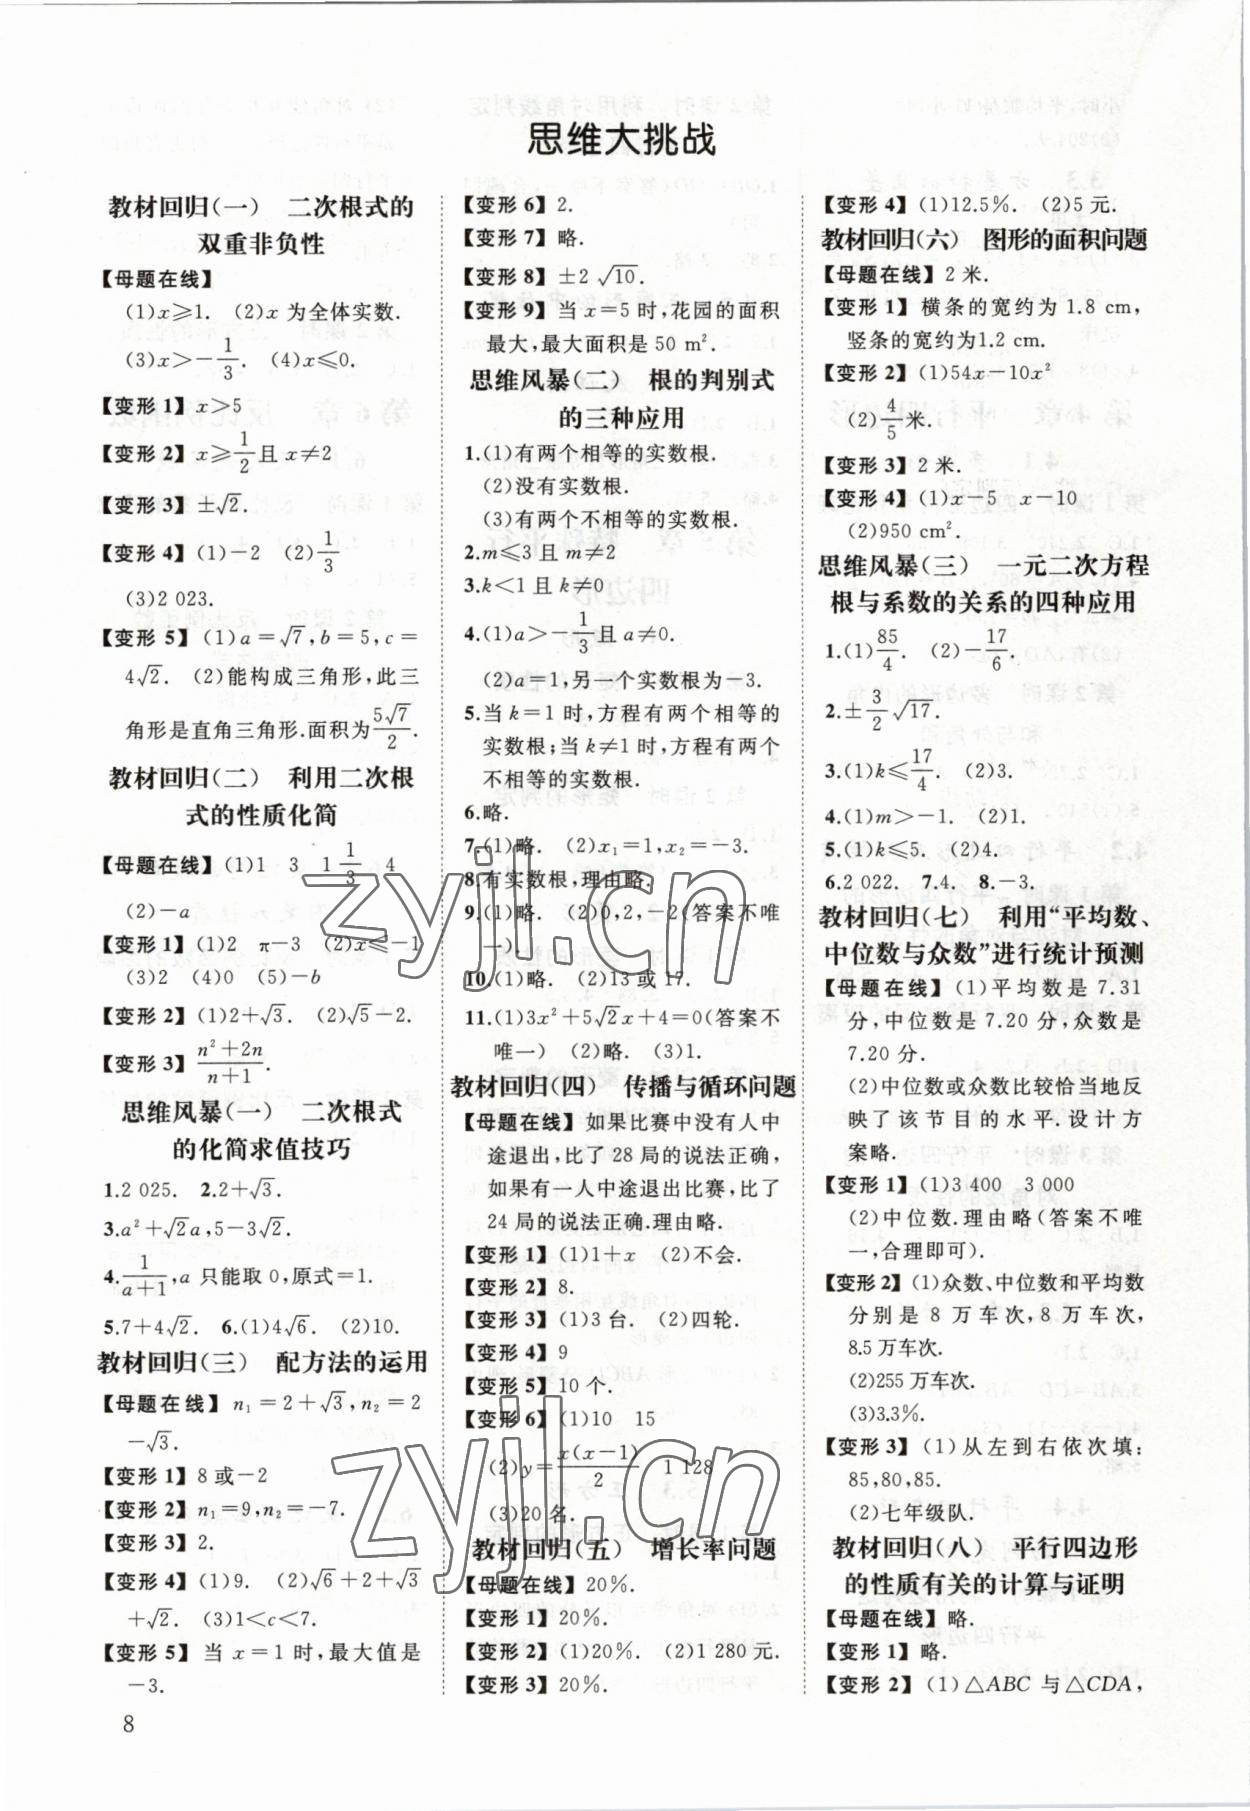 思维大挑战
教材回归(一) 二次根式的
双重非负性
【母题在线】
(1)x≥1. (2)x 为全体实数.
(3)x>-1/3. (4)x≤0.
【变形 1】x>5
【变形 2】x≥1/2且 x≠2
【变形 3】±√2.
【变形 4】(1)-2 (2)1/3
(3)2 023.
【变形 5】(1)a=√7,b=5,c=
4√2. (2)能构成三角形,此三
角形是直角三角形.面积为5√7/2.
教材回归(二) 利用二次根
式的性质化简
【母题在线】(1)1 3 1 1/3 4
(2)-a
【变形 1】(1)2 π-3 (2)x≤-1
(3)2 (4)0 (5)-b
【变形 2】(1)2+√3. (2)√5-2.
【变形 3】(n²+2n)/(n+1).
思维风暴(一) 二次根式
的化简求值技巧
1.2 025. 2.2+√3.
3.a²+√2a,5-3√2.
4.1/(a+1),a 只能取 0,原式=1.
5.7+4√2. 6.(1)4√6. (2)10.
教材回归(三) 配方法的运用
【母题在线】n₁=2+√3,n₂=2
-√3.
【变形 1】8 或-2
【变形 2】n₁=9,n₂=-7.
【变形 3】2.
【变形 4】(1)9. (2)√6+2+√3
+√2. (3)1<c<7.
【变形 5】当 x=1 时,最大值是
-3.
8
【变形 6】2.
【变形 7】略.
【变形 8】±2√10.
【变形 9】当 x=5 时,花园的面积
最大,最大面积是 50 m².
思维风暴(二) 根的判别式
的三种应用
1.(1)有两个相等的实数根.
(2)没有实数根.
(3)有两个不相等的实数根.
2.m≤3且 m≠2
3.k<1 且 k≠0
4.(1)a>-1/3且 a≠0.
(2)a=1,另一个实数根为-3.
5.当 k=1 时,方程有两个相等的
实数根;当 k≠1 时,方程有两个
不相等的实数根.
6.略.
7.(1)略. (2)x₁=1,x₂=-3.
8.有实数根,理由略.
9.(1)略. (2)0,2,-2(答案不唯
一).
10.(1)略. (2)13 或 17.
11.(1)3x²+5√2x+4=0(答案不
唯一) (2)略. (3)1.
教材回归(四) 传播与循环问题
【母题在线】如果比赛中没有人中
途退出,比了 28 局的说法正确,
如果有一人中途退出比赛,比了
24 局的说法正确.理由略.
【变形 1】(1)1+x (2)不会.
【变形 2】8.
【变形 3】(1)3 台. (2)四轮.
【变形 4】9
【变形 5】10 个.
【变形 6】(1)10 15
(2)y=x(x-1)/2 1 128
(3)20 名.
教材回归(五) 增长率问题
【母题在线】20%.
【变形 1】20%.
【变形 2】(1)20% (2)1 280 元.
【变形 3】20%.
【变形 4】(1)12.5%. (2)5 元.
教材回归(六) 图形的面积问题
【母题在线】2 米.
【变形 1】横条的宽约为 1.8 cm,
竖条的宽约为1.2 cm.
【变形 2】(1)54x-10x²
(2)4/5米.
【变形 3】2 米.
【变形 4】(1)x-5 x-10
(2)950 cm².
思维风暴(三) 一元二次方程
根与系数的关系的四种应用
1.(1)85/4. (2)-17/6.
2.±3/2√17.
3.(1)k≤17/4. (2)3.
4.(1)m>-1. (2)1.
5.(1)k≤5. (2)4.
6.2 022. 7.4. 8.-3.
教材回归(七) 利用“平均数、
中位数与众数”进行统计预测
【母题在线】(1)平均数是 7.31
分,中位数是 7.20 分,众数是
7.20 分.
(2)中位数或众数比较恰当地反
映了该节目的水平.设计方
案略.
【变形 1】(1)3 400 3 000
(2)中位数.理由略(答案不唯
一,合理即可).
【变形 2】(1)众数、中位数和平均数
分别是 8 万车次,8 万车次,
8.5 万车次.
(2)255 万车次.
(3)3.3%.
【变形 3】(1)从左到右依次填:
85,80,85.
(2)七年级队.
教材回归(八) 平行四边形
的性质有关的计算与证明
【母题在线】略.
【变形 1】略.
【变形 2】(1)△ABC 与△CDA,
zyjl.cn
zyjl.cn